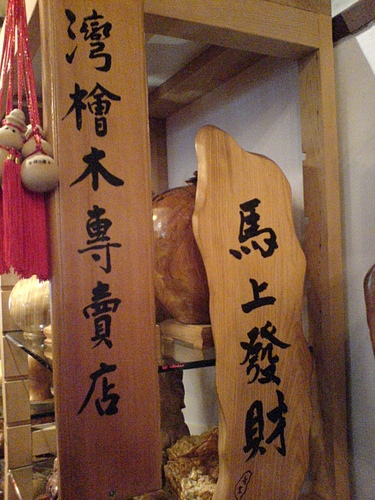 灣檜木專賣店
馬上發財